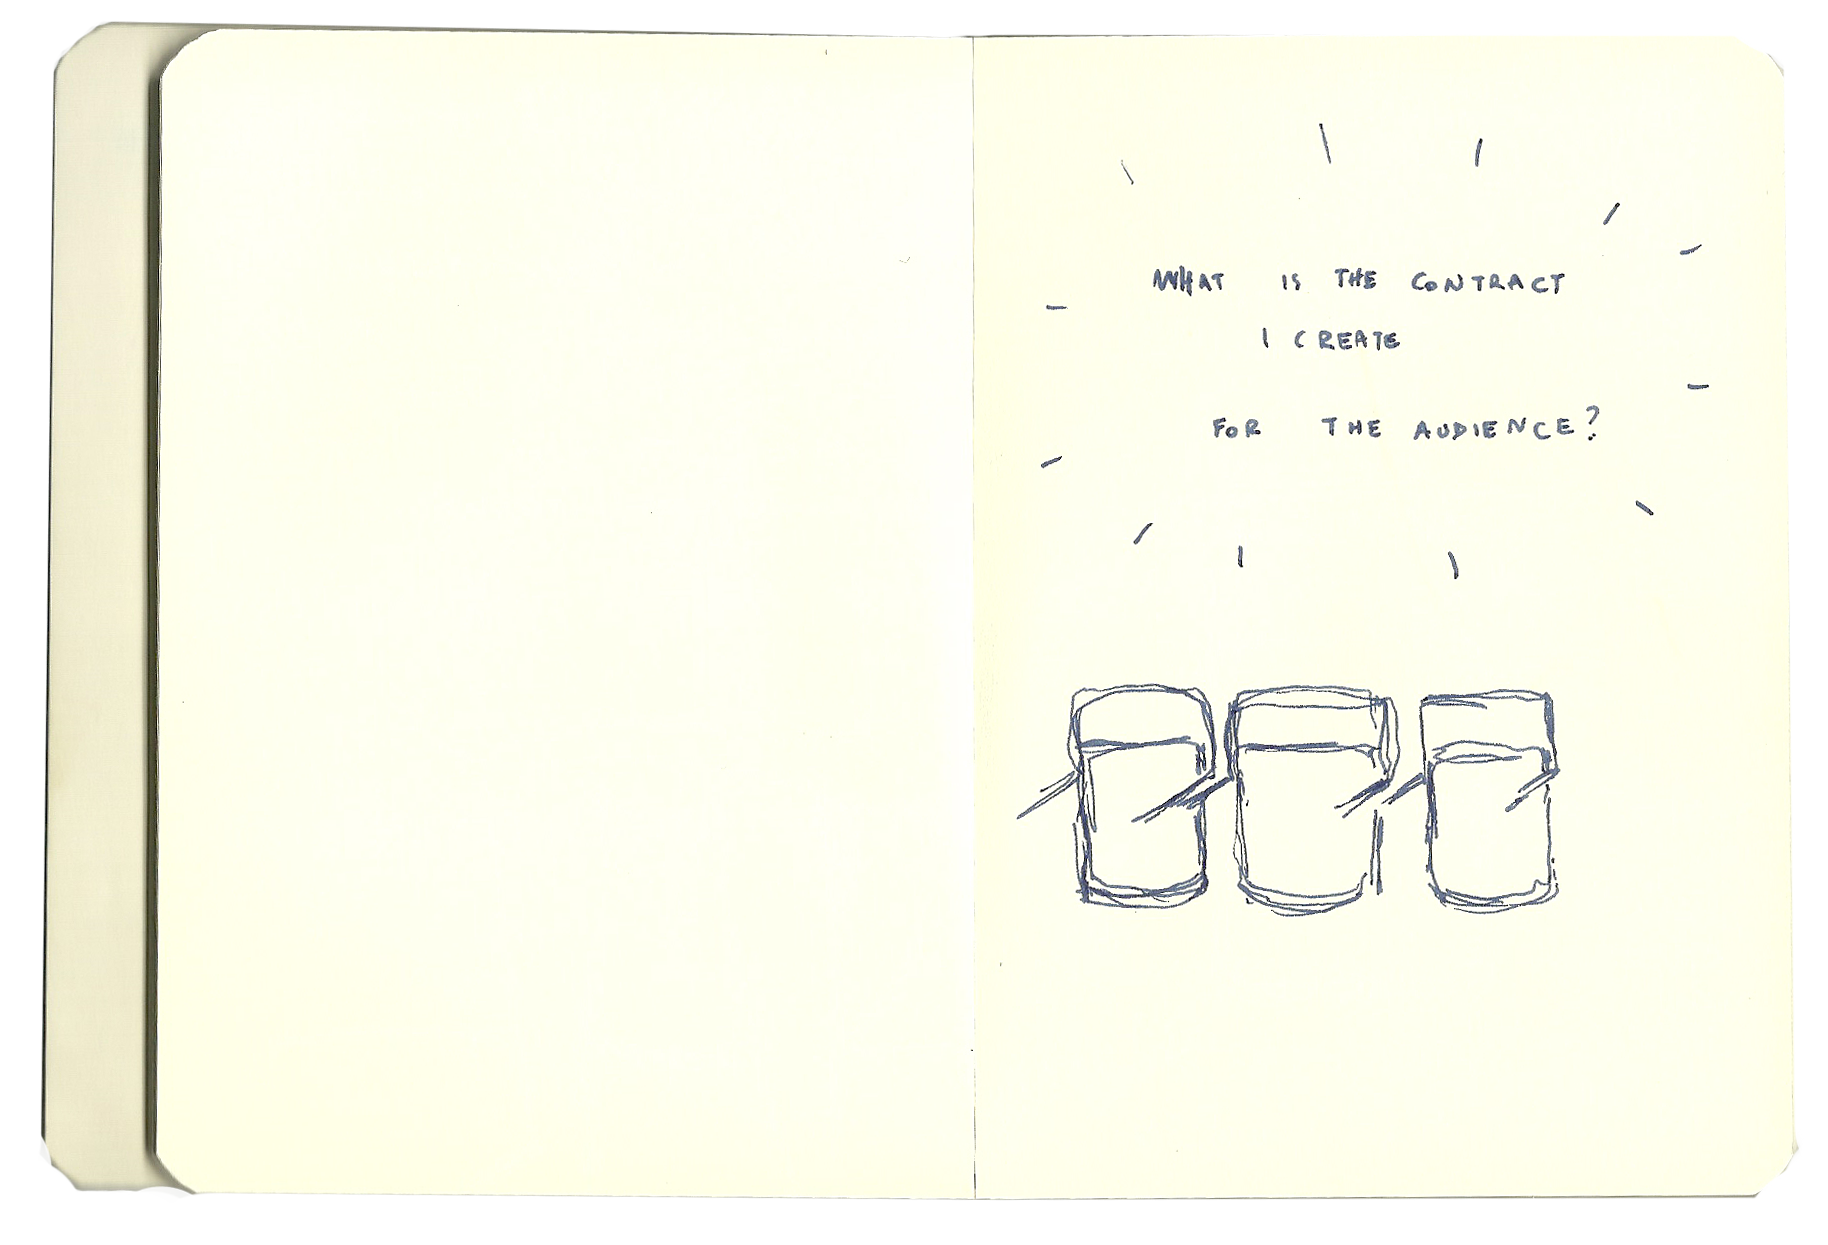 WHAT IS THE CONTRACT
I CREATE
FOR THE AUDIENCE?